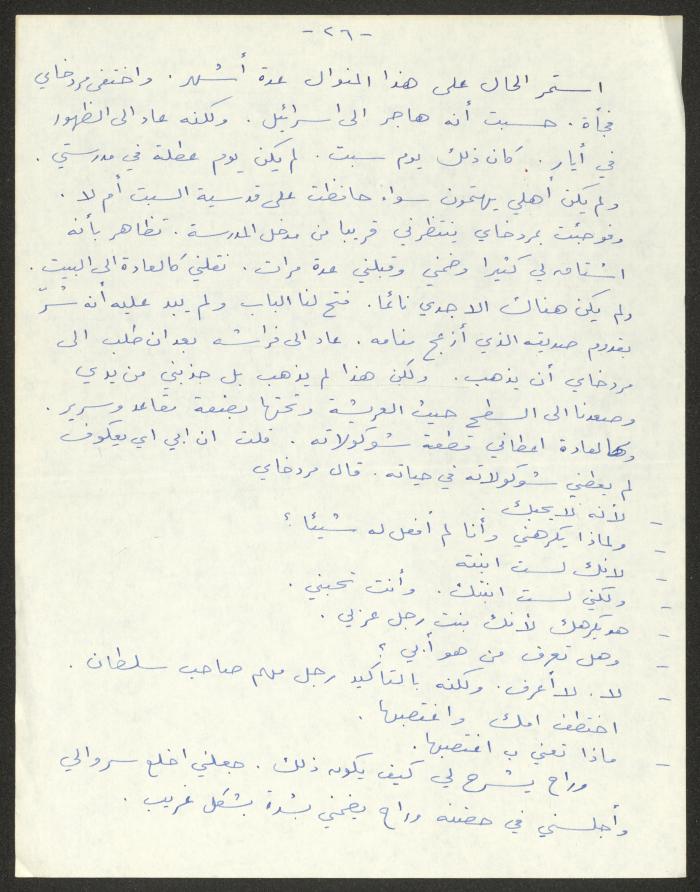 -٢٦-
استمر الحال على هذا المنوال عدة أشهر. واختفى مردخاي
فجأة. حسبت أنه هاجر الى اسرائيل. ولكنه عاد الى الظهور
في أيار. كان ذلك يوم سبت. لم يكن يوم عطلة في مدرستي.
ولم يكن أهلي يهتمون سواء حافظت على قدسية السبت أم لا.
وفوجئت بمردخاي ينتظرني قريبا من مدخل المدرسة. تظاهر بأنه
اشتاق لي كثيرا وضمني وقبلني عدة مرات. نقلني كالعادة الى البيت.
ولم يكن هناك الا جدي نائما. فتح لنا الباب ولم يبد عليه أنه سُرّ
بقدوم صديقه الذي أزعج منامه. عاد الى فراشه بعد ان طلب الى
مردخاي أن يذهب. ولكن هذا لم يذهب بل جذبني من يدي
وصعدنا الى السطح حيث العريشة وتحتها بضعة مقاعد وسرير.
وكالعادة اعطاني قطعة شوكولاته. قلت ان ابي اي يعكوف
لم يعطني شوكولاته في حياته. قال مردخاي
- لأنه لا يحبك.
- ولماذا يكرهني وأنا لم أفعل له شيئا؟
- لانك لست ابنته
- ولكني لست ابنتك. وأنت تحبني.
- هو يكرهك لأنك بنت رجل عربي.
- وهل تعرف من هو أبي؟
- لا. لا أعرف. ولكنه بالتاكيد رجل مهم صاحب سلطان.
اختطف امك واغتصبها.
- ماذا تعني ب اغتصبها.
وراح يشرح لي كيف يكون ذلك. جعلني اخلع سروالي
وأجلسني في حضنه وراح يضمني بشدة بشكل غريب.